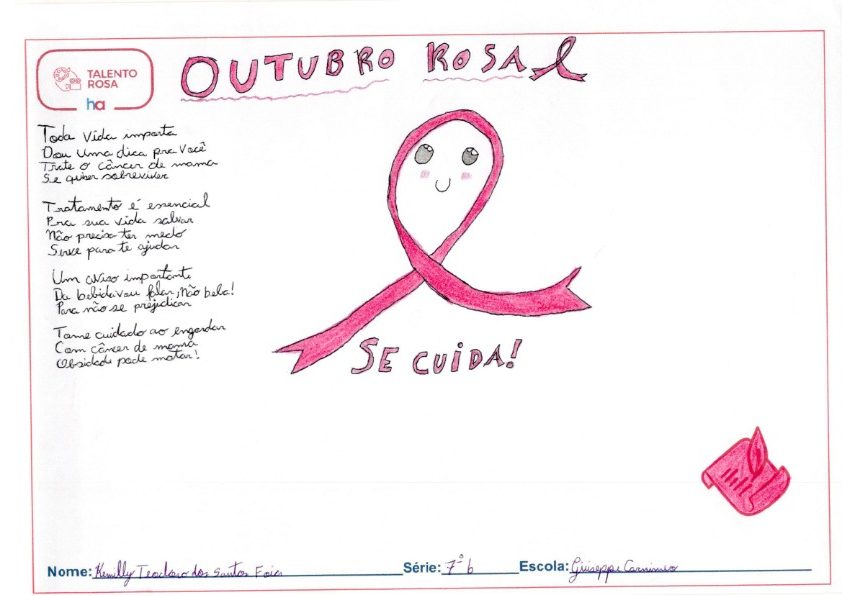 OUTUBRO ROSA
TALENTO
ROSA
ha
Toda vida importa
Dou uma dica pra você
Trate o câncer de mama
Se quiser sobreviver
Tratamento é essencial
Pra sua vida salvar
Não precisa ter medo
Serve para te ajudar
Um aviso importante
Da bebida vou falar, Não beba!
Para não se prejudicar
Tome cuidado ao engordar
Com câncer de mama
Obsidade pode matar!
SE CUIDA!
Nome: Kemilly Teodoro dos Santos
Série: 7º b
Escola: Giuseppe